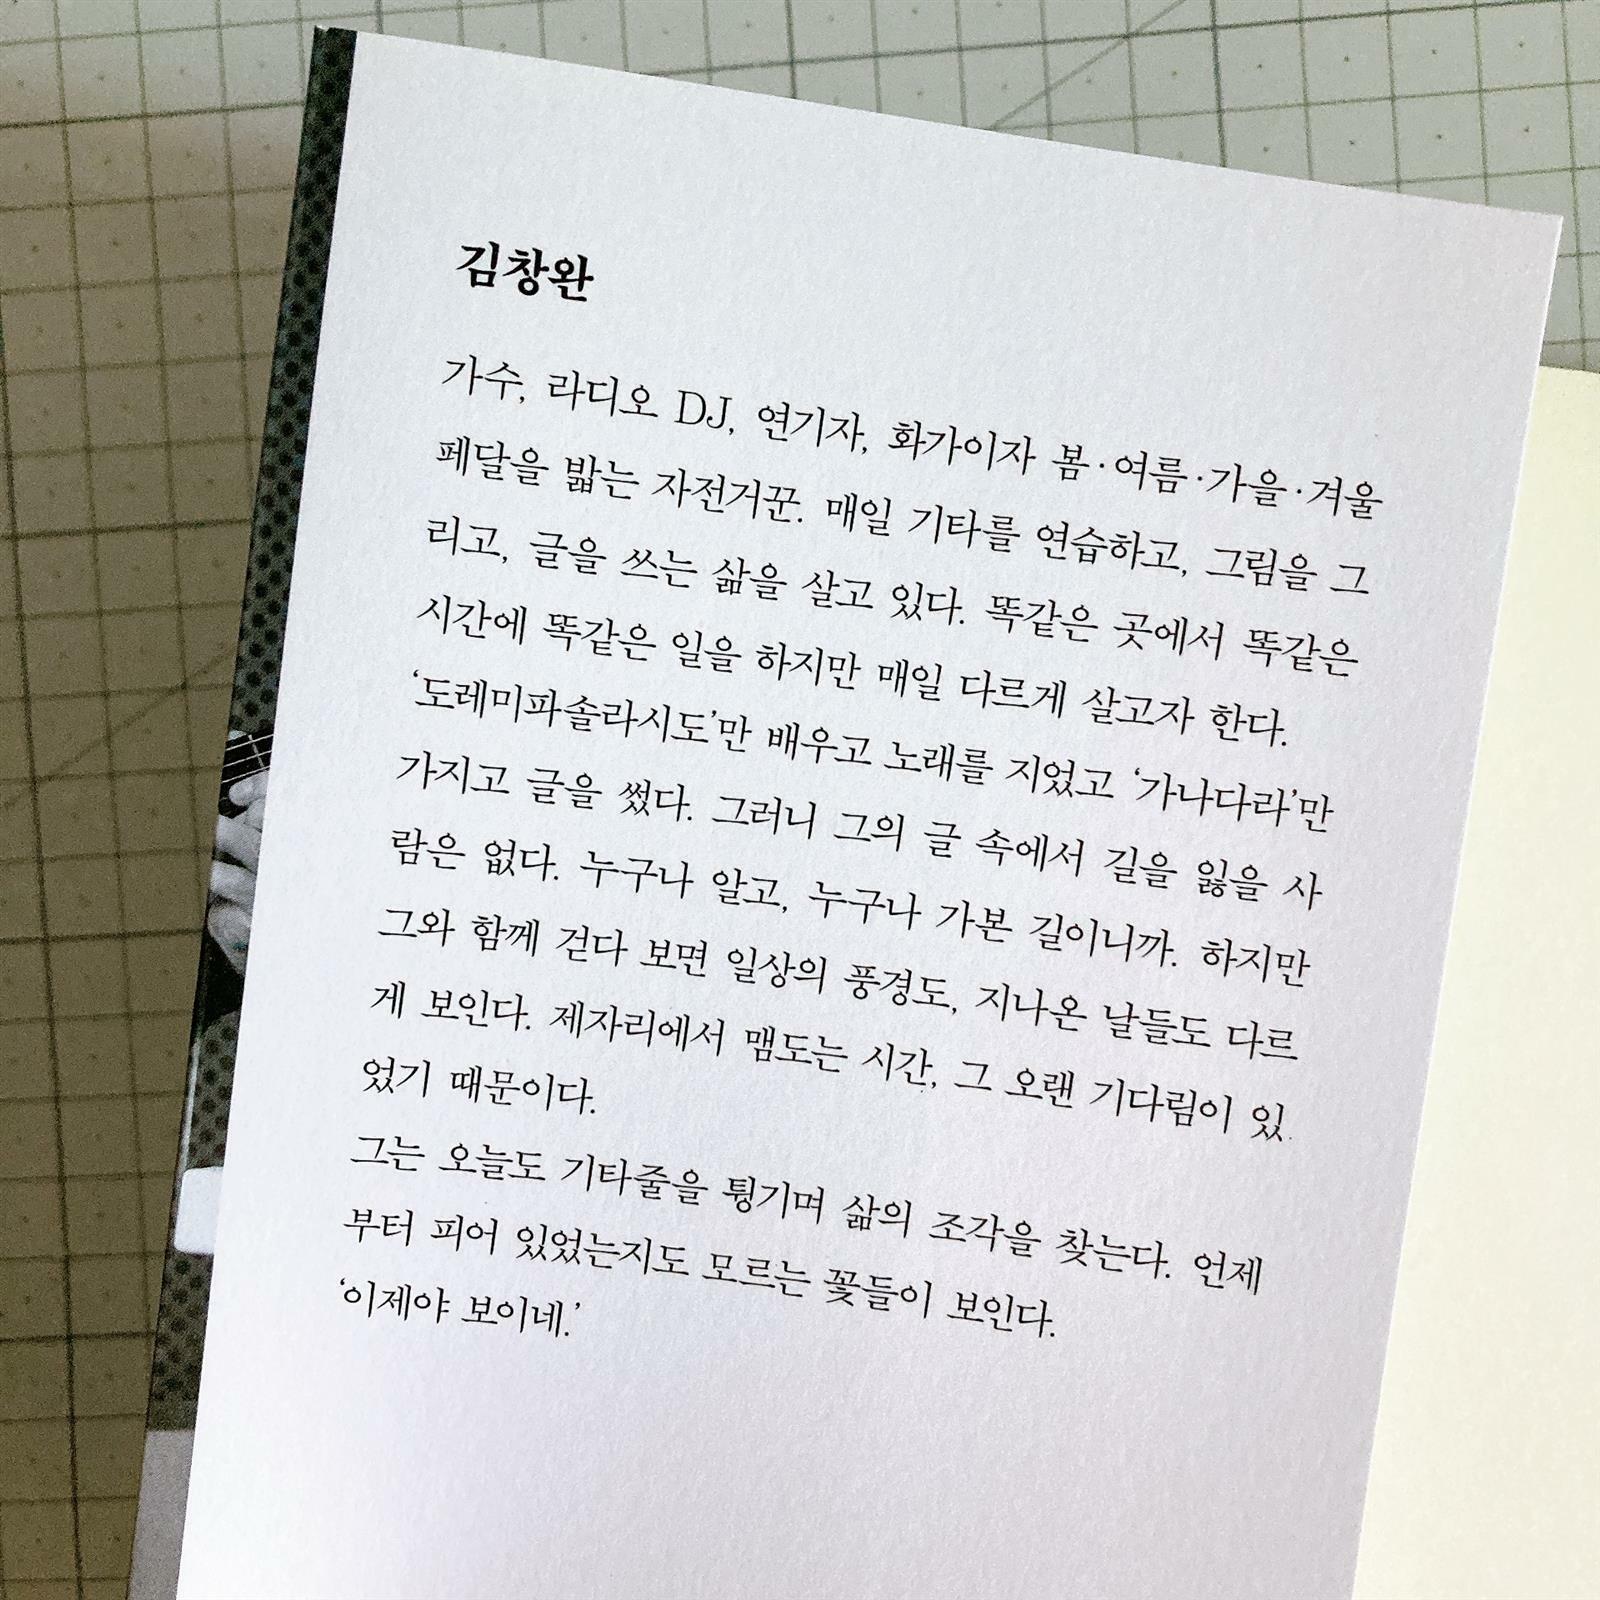 김창완
가수, 라디오 DJ, 연기자, 화가이자 봄·여름·가을·겨울
페달을 밟는 자전거꾼. 매일 기타를 연습하고, 그림을 그
리고, 글을 쓰는 삶을 살고 있다. 똑같은 곳에서 똑같은
시간에 똑같은 일을 하지만 매일 다르게 살고자 한다.
‘도레미파솔라시도’만 배우고 노래를 지었고 ‘가나다라’만
가지고 글을 썼다. 그러니 그의 글 속에서 길을 잃을 사
람은 없다. 누구나 알고, 누구나 가본 길이니까. 하지만
그와 함께 걷다 보면 일상의 풍경도, 지나온 날들도 다르
게 보인다. 제자리에서 맴도는 시간, 그 오랜 기다림이 있
었기 때문이다.
그는 오늘도 기타줄을 튕기며 삶의 조각을 찾는다. 언제
부터 피어 있었는지도 모르는 꽃들이 보인다.
‘이제야 보이네.’